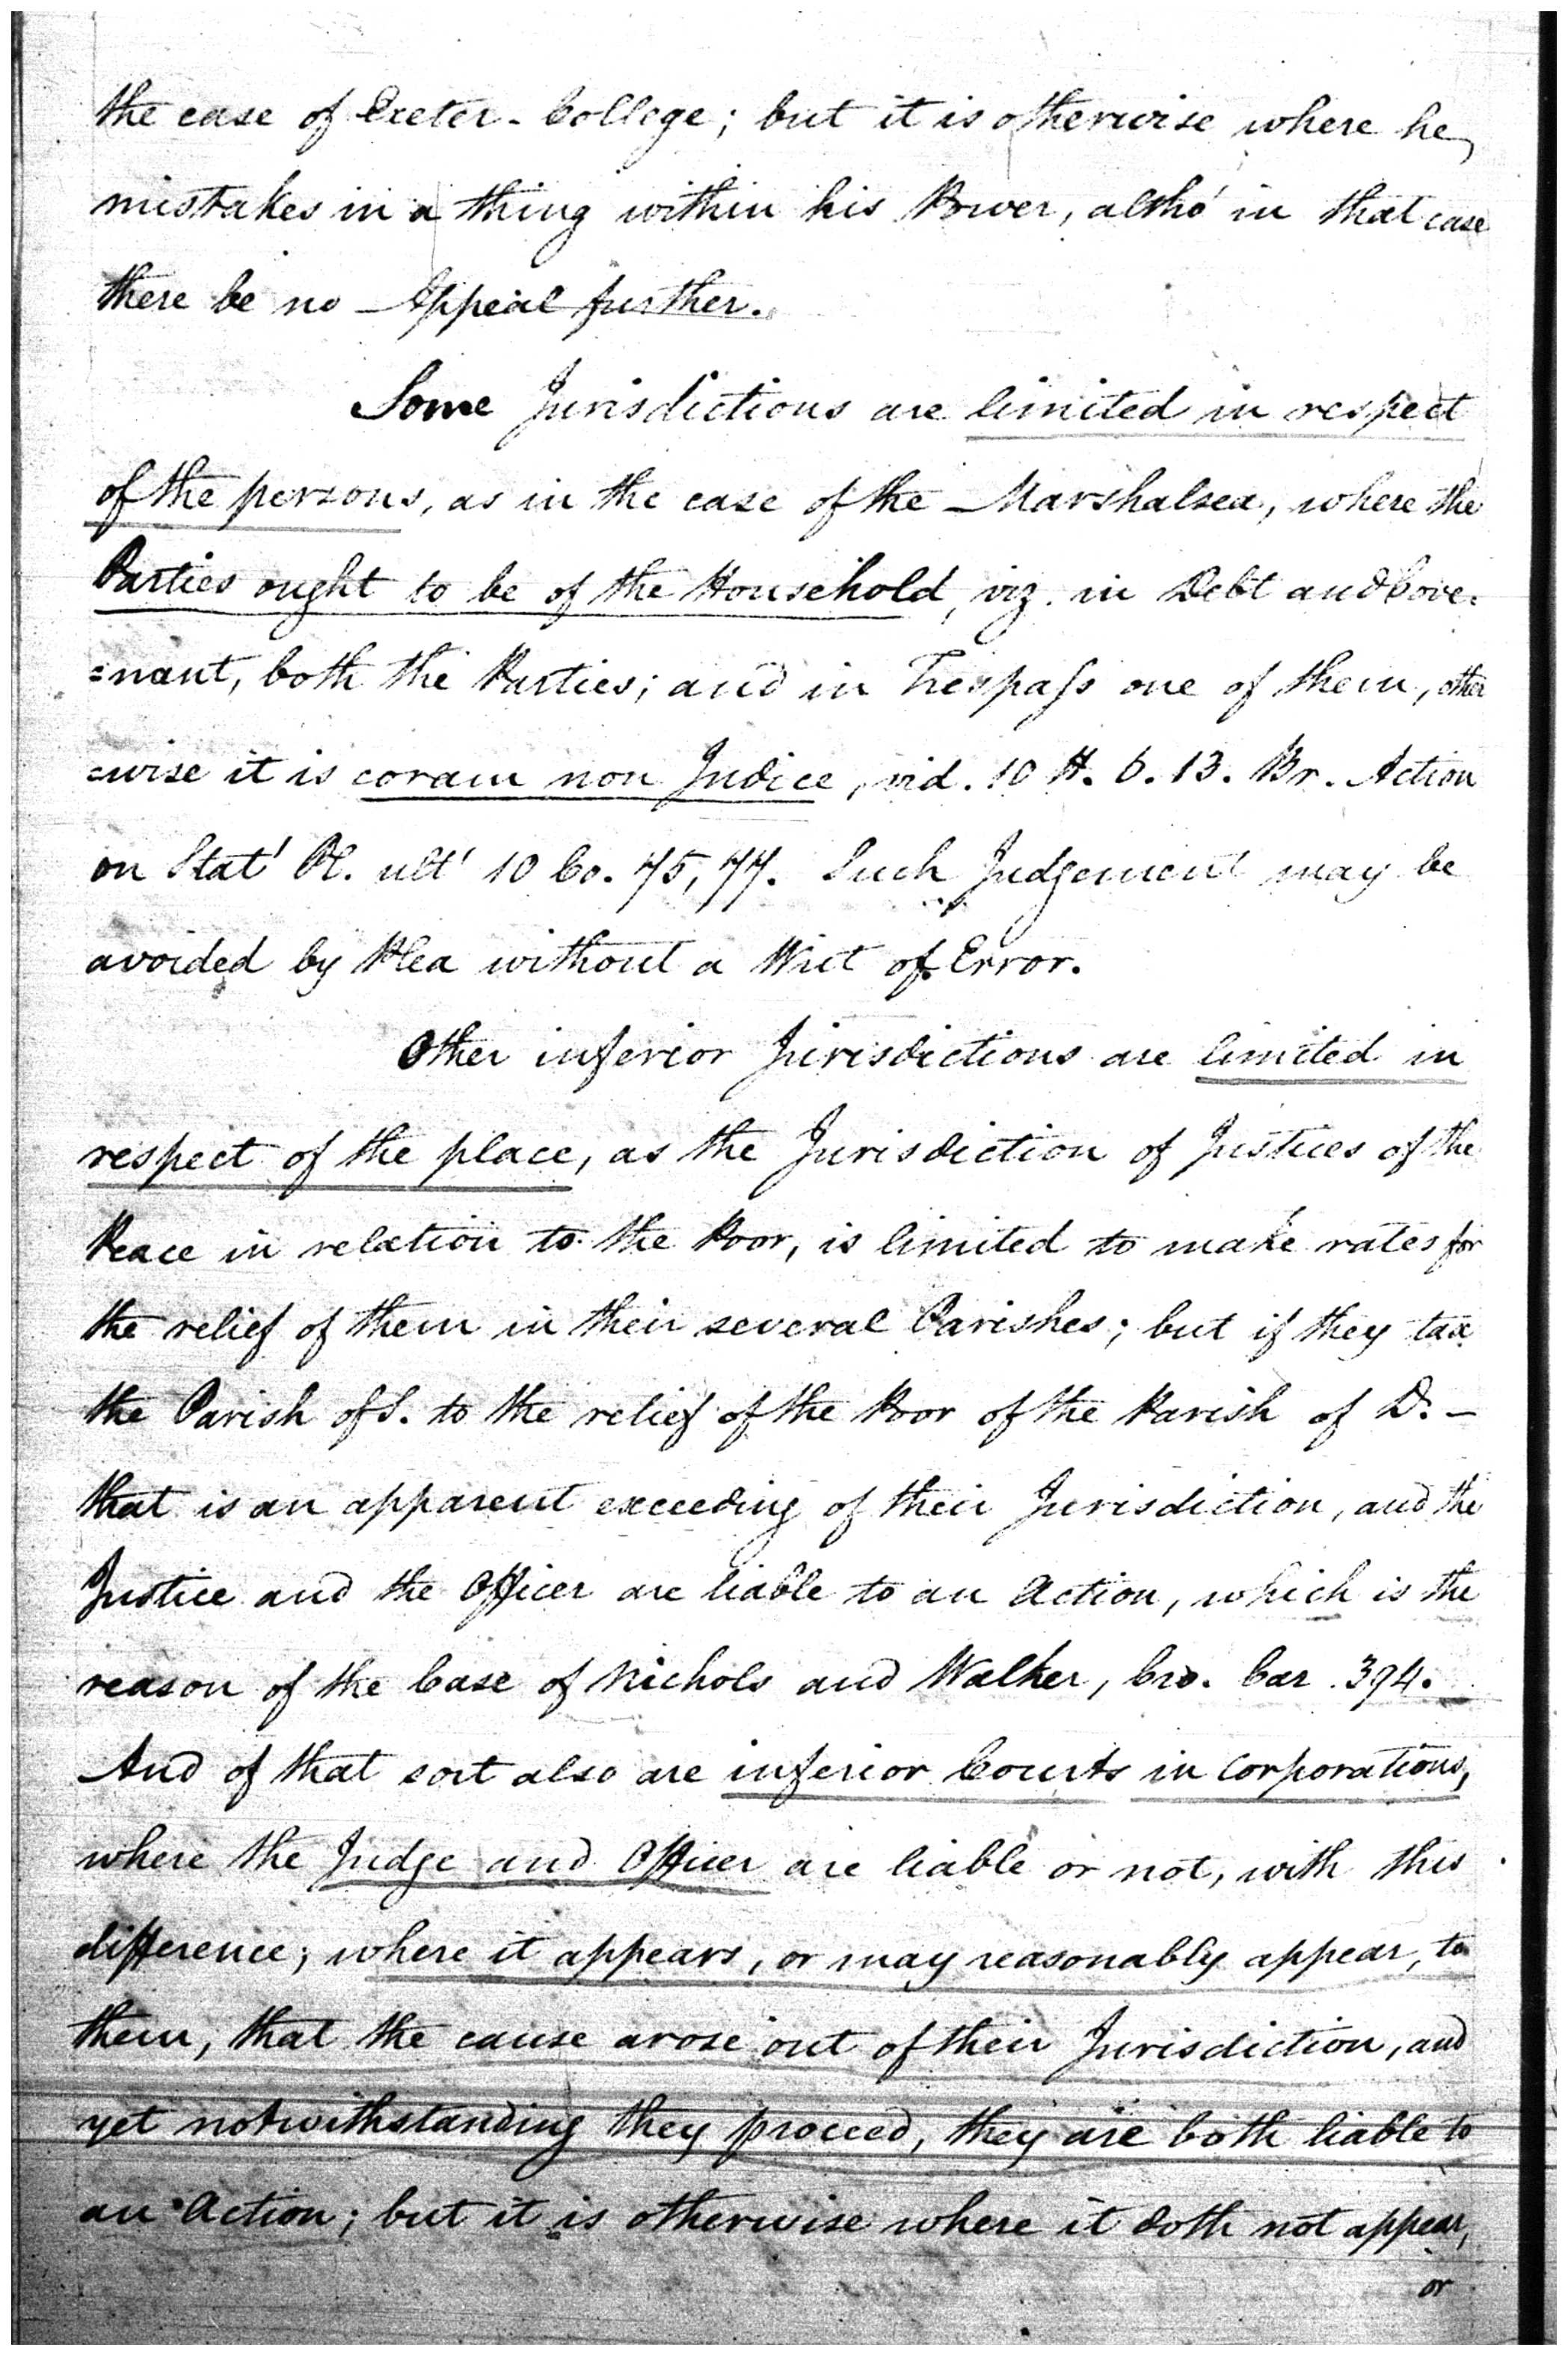 the case of Exeter-College; but it is otherwise where he
mistakes in a thing within his Power, altho' in that case
there be no Appeal further.
Some Jurisdictions are limited in respect
of the persons, as in the case of the Marshalsea, where the
Parties ought to be of the Household, viz. in Debt and Cove-
=nant, both the Parties; and in Trespass one of them, other
=wise it is coram non Judice, vid. 10 H. 6. 13. Br. Action
on Stat' Pl. ult' 10 Co. 75, 77. Such Judgement may be
avoided by Plea without a Writ of Error.
Other inferior Jurisdictions are limited in
respect of the place, as the Jurisdiction of Justices of the
Peace in relation to the Poor, is limited to make rates for
the relief of them in their several Parishes; but if they tax
the Parish of S. to the relief of the Poor of the Parish of D. -
that is an apparent exceeding of their Jurisdiction, and the
Justice and the Officer are liable to an Action, which is the
reason of the Case of Nichols and Walker, Cro. Car. 394.
And of that sort also are inferior Courts in Corporations,
where the Judge and Officer are liable or not, with this
difference; where it appears, or may reasonably appear, to
them, that the cause arose out of their Jurisdiction, and
yet notwithstanding they proceed, they are both liable to
an Action; but it is otherwise where it doth not appear,
or